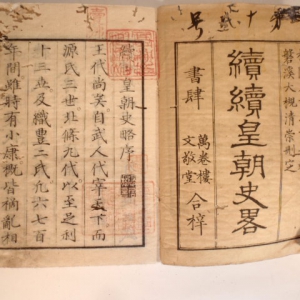 磐溪大槻清崇刪定
續續皇朝史畧
書肆
萬卷樓
文敬堂
合梓
皇朝史略序
王代尚矣自武人代宰天下而
源氏三世北條九代以至足利
十三世及織豐二氏凡六七百
年間雖時有小康概皆禍亂相